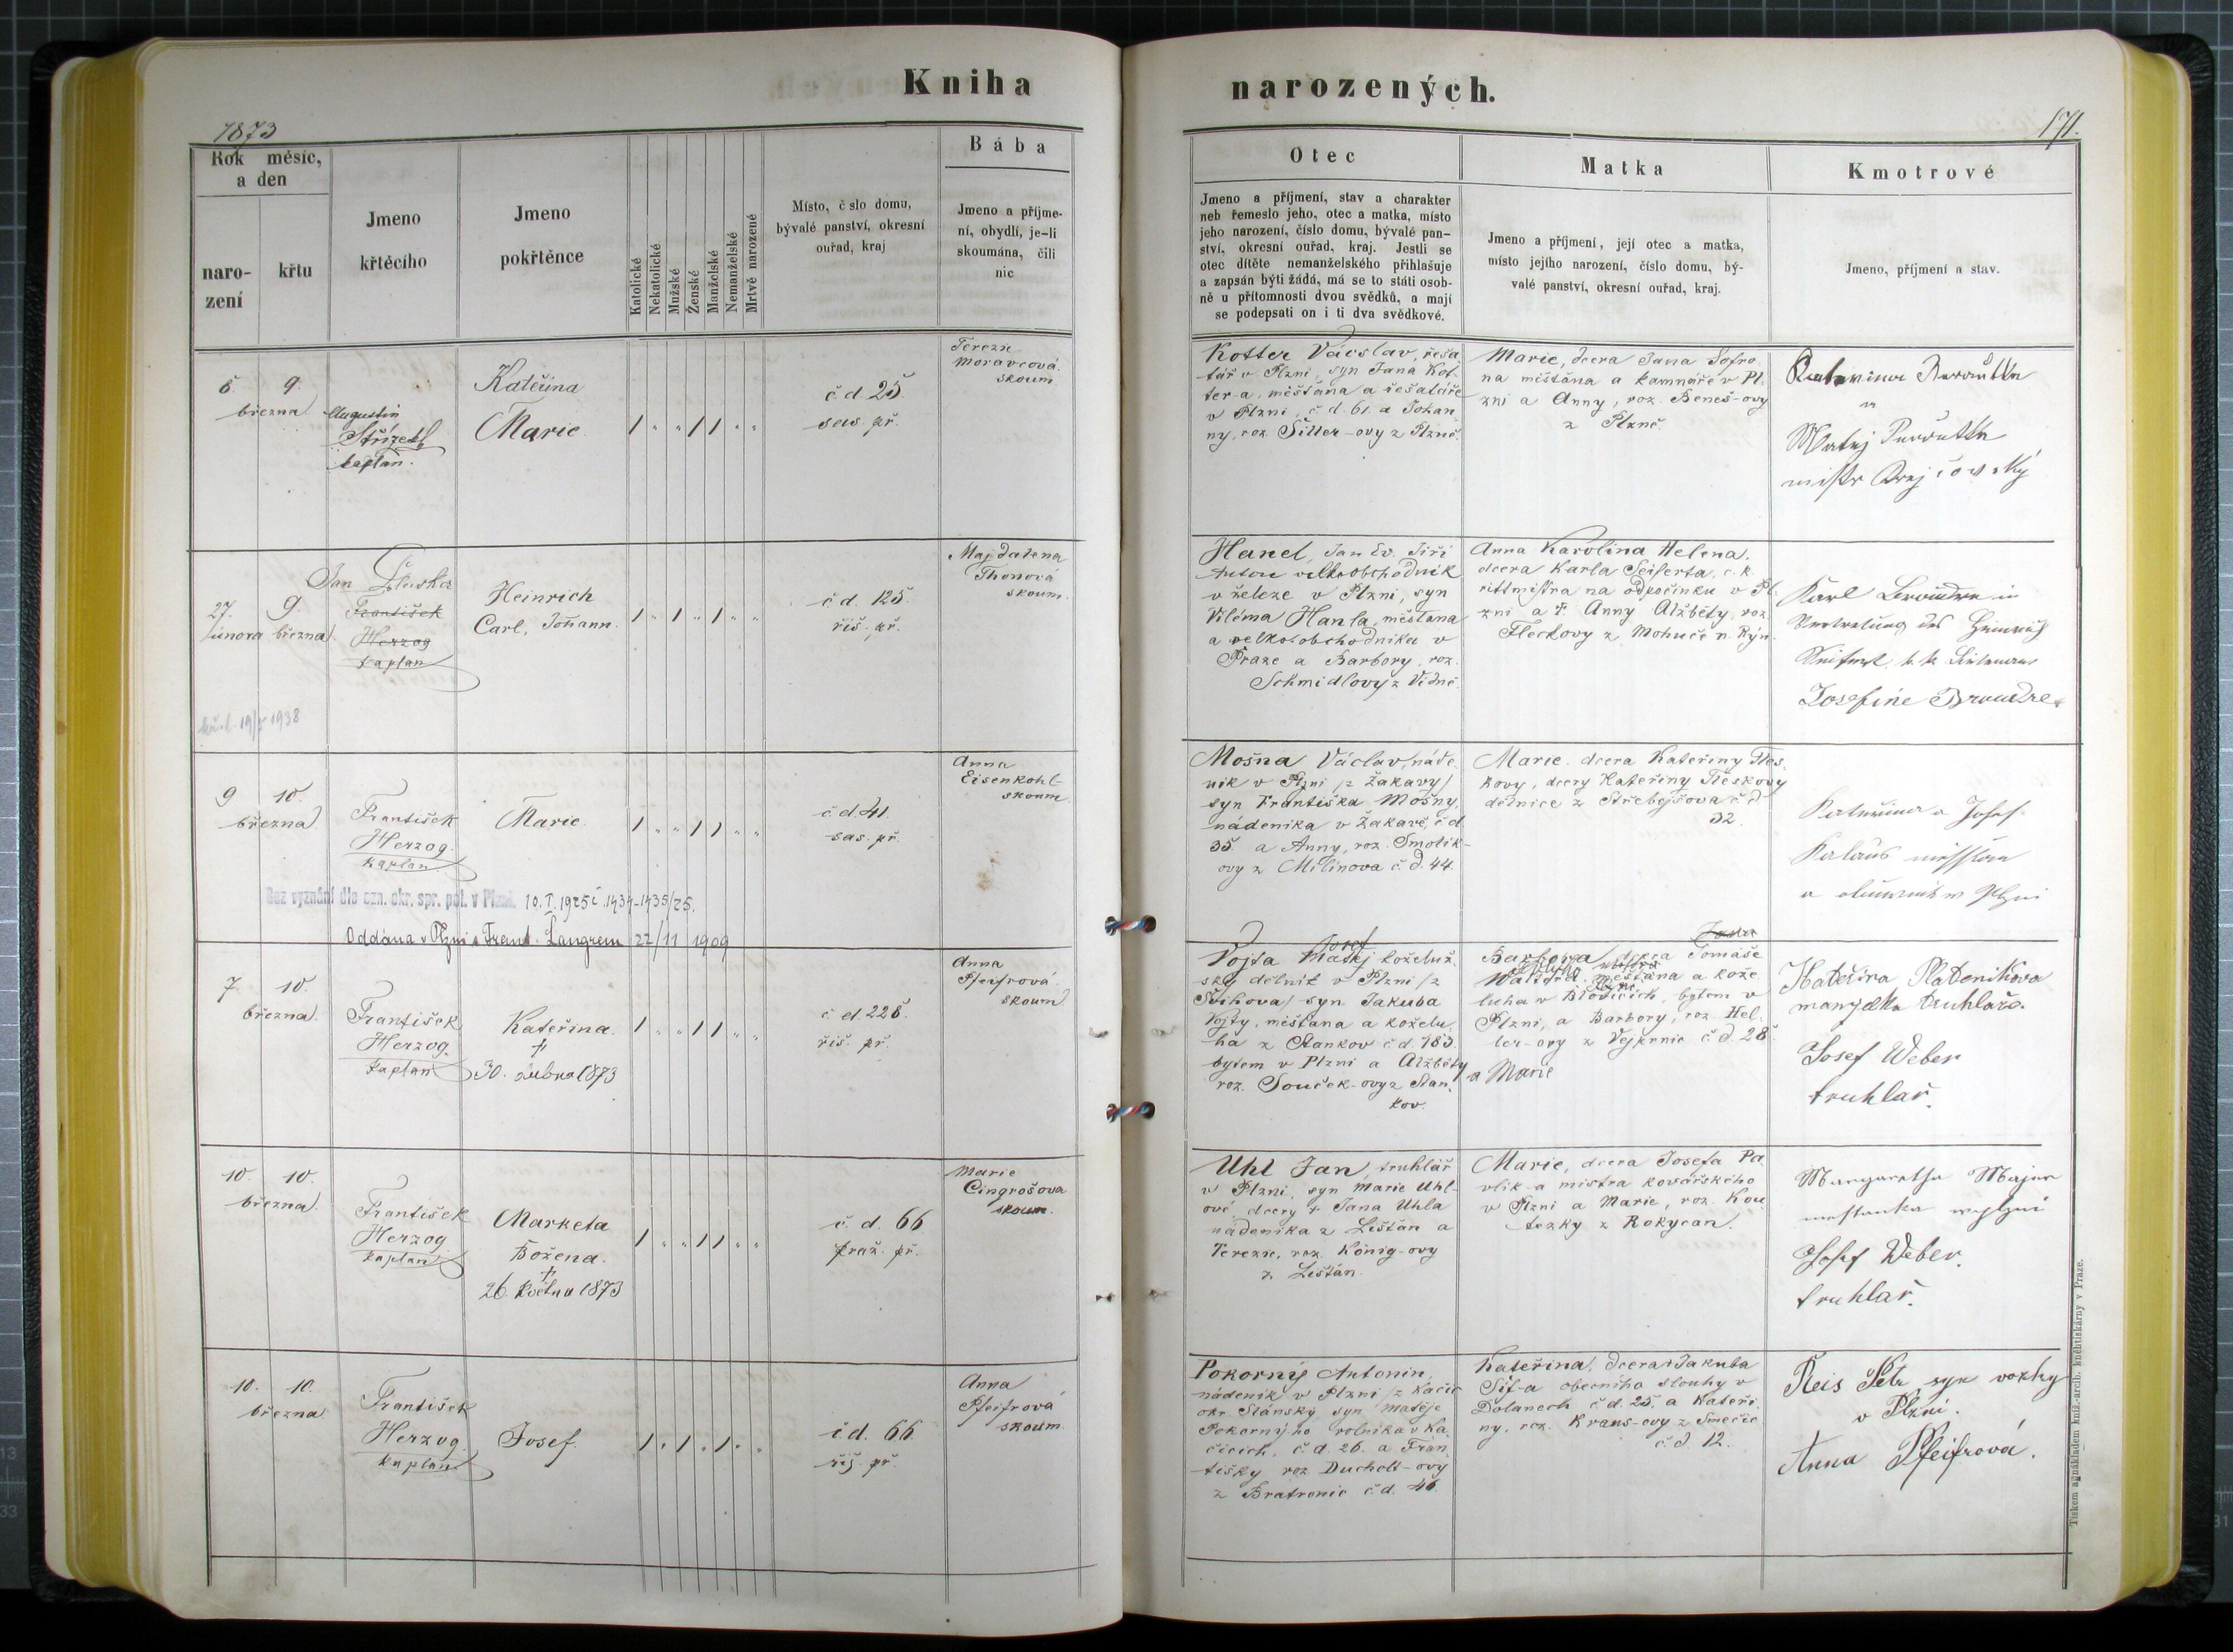 Kniha
narozených.
1873
171.
Rok měsíc,
a den
naro-
zení
křtu
Jmeno
křtěcího
Jmeno
pokřtěnce
Katolické
Nekatolické
Mužské
Ženské
Manželské
Nemanželské
Mrtvě narozené
Místo, č slo domu,
bývalé panství, okresní
ouřad, kraj
Bába
Jmeno a příjme-
ní, obydlí, je-li
skoumána, čili
nic
Otec
Jmeno a příjmení, stav a charakter
neb řemeslo jeho, otec a matka, místo
jeho narození, číslo domu, bývalé pan-
ství, okresní ouřad, kraj. Jestli se
otec dítěte nemanželského přihlašuje
a zapsán býti žádá, má se to státi osob-
ně u přítomnosti dvou svědků, a mají
se podepsati on i ti dva svědkové.
Matka
Jmeno a příjmení, její otec a matka,
místo jejího narození, číslo domu, bý-
valé panství, okresní ouřad, kraj.
Kmotrové
Jmeno, příjmení a stav.
9.
března
Augustin
Střízek
kaplan.
Kateřina
Marie
č d. 25.
sas. př.
Terezie
Moravcová.
skoum
Kotter Vácslav, řeša
tář v Plzni, syn Jana Kot-
ter-a, měšťana a řešatáře
v Plzni, č. d. 61. a Johan
ny, roz. Šiller-ovy z Plzně.
Marie, dcera Jana Sofro
na měšťana a kamnáře v Pl
zni a Anny, roz. Beneš-ovy
z Plzně.
Matej
mistr Krejčovský
27. 9.
února března
Jan
František
Herzog
kaplan
Heinrich
Carl, Johann.
č d. 125.
říš. př.
Majdalena
Thonová
skoum.
Hanel, Jan Ev. Jiří
Anton velkoobchodník
v železe v Plzni, syn
Viléma Hanla, měšťana
a velkoobchodníka v
Praze a Barbory, roz.
Schmidlovy z Vídně.
Anna Karolina Helena,
dcera Karla Seiferta, c. k.
rittmistra na odpočinku v Pl
zni a †. Anny Alžběty, roz.
Fleckovy z Mohuče n. Rýn.
Karl
Vertretung des Heinrich
Seifert, k. k.
Josefine
1938
9 10.
března
František
Herzog.
kaplan
Marie.
č d. 41.
sas. př.
Anna
Eisenkohl-
skoum.
Mošna Václav, náde
ník v Plzni /z Žákavy/
syn Františka Mošny,
nádeníka v Žákavě, č d
35 a Anny, roz. Smolík-
ovy z Milinova č. d. 44.
Marie. dcera Kateřiny Třes
kovy, dcery Kateřiny Třeskovy
dělnice z č d
32.
Kateřina a Josef
Kalaus
Bez vyznání dle ozn. okr. spr. pol. v Plzni. 10. I. 1925 č. 1434-1435/25.
Oddána v Plzni s Frant. Langrem 22/11 1909
7. 10.
března.
František
Herzog.
kaplan
Kateřina.
†
30. dubna 1873
č d. 226.
říš. př.
Anna
Pfeifrová.
skoum
Josef
Vojta Matěj koželuž.
ský dělník v Plzni /z
Švihova/ syn Jakuba
Vojty, měšťana a koželu
ha z Stankov č d. 183.
bytem v Plzni a Alžběty
roz. Souček-ovy z Stan.
kov.
Barbora, dcera Tomáše
měšťana a kože
luha v Blovicích, bytem v
Plzni, a Barbory, roz. Hel
ler-ovy z Vejprnic č. d. 28.
a Marie
Kateřina Platenikova
manzelka truhlaře.
Josef Weber
truhlař.
10. 10.
března.
František
Herzog
kaplan
Marketa
Božena.
†
26. května 1873
č. d. 66
praž. př.
Marie
Cingrošova
skoum.
Uhl Jan, truhlář
v Plzni, syn Marie Uhl-
ové, dcery † Jana Uhla
nádeníka z Lištan a
Terezie, roz. König-ovy
z Lištan.
Marie, dcera Josefa Pa
vlík-a mistra kovářského
v Plzni a Marie, roz. Kou
tezky z Rokycan.
Margaretha Majer
Josef Weber.
truhlař.
10. 10.
března
František
Herzog.
kaplan
Josef.
č d. 66.
říš. př.
Anna
Pfeifrová
skoum.
Pokorný Antonin,
nádeník v Plzni /z Kačic
okr. Slánský, syn Matěje
Pokorného rolníka v Ka
čicích, č. d. 26. a Fran
tišky roz. Duchelt-ovy
z Bratronic č. d. 46.
Kateřina, dcera † Jakuba
Síf-a obecního slouhy v
Dolanech č. d. 25. a Kateři
ny, roz. Kraus-ovy z Smečic
č. d. 12.
Reis Petr syn vozky
v Plzni.
Anna Pfeifrová.
Tiskem a nákladem kniž.-arcib. kněhtiskárny v Praze.